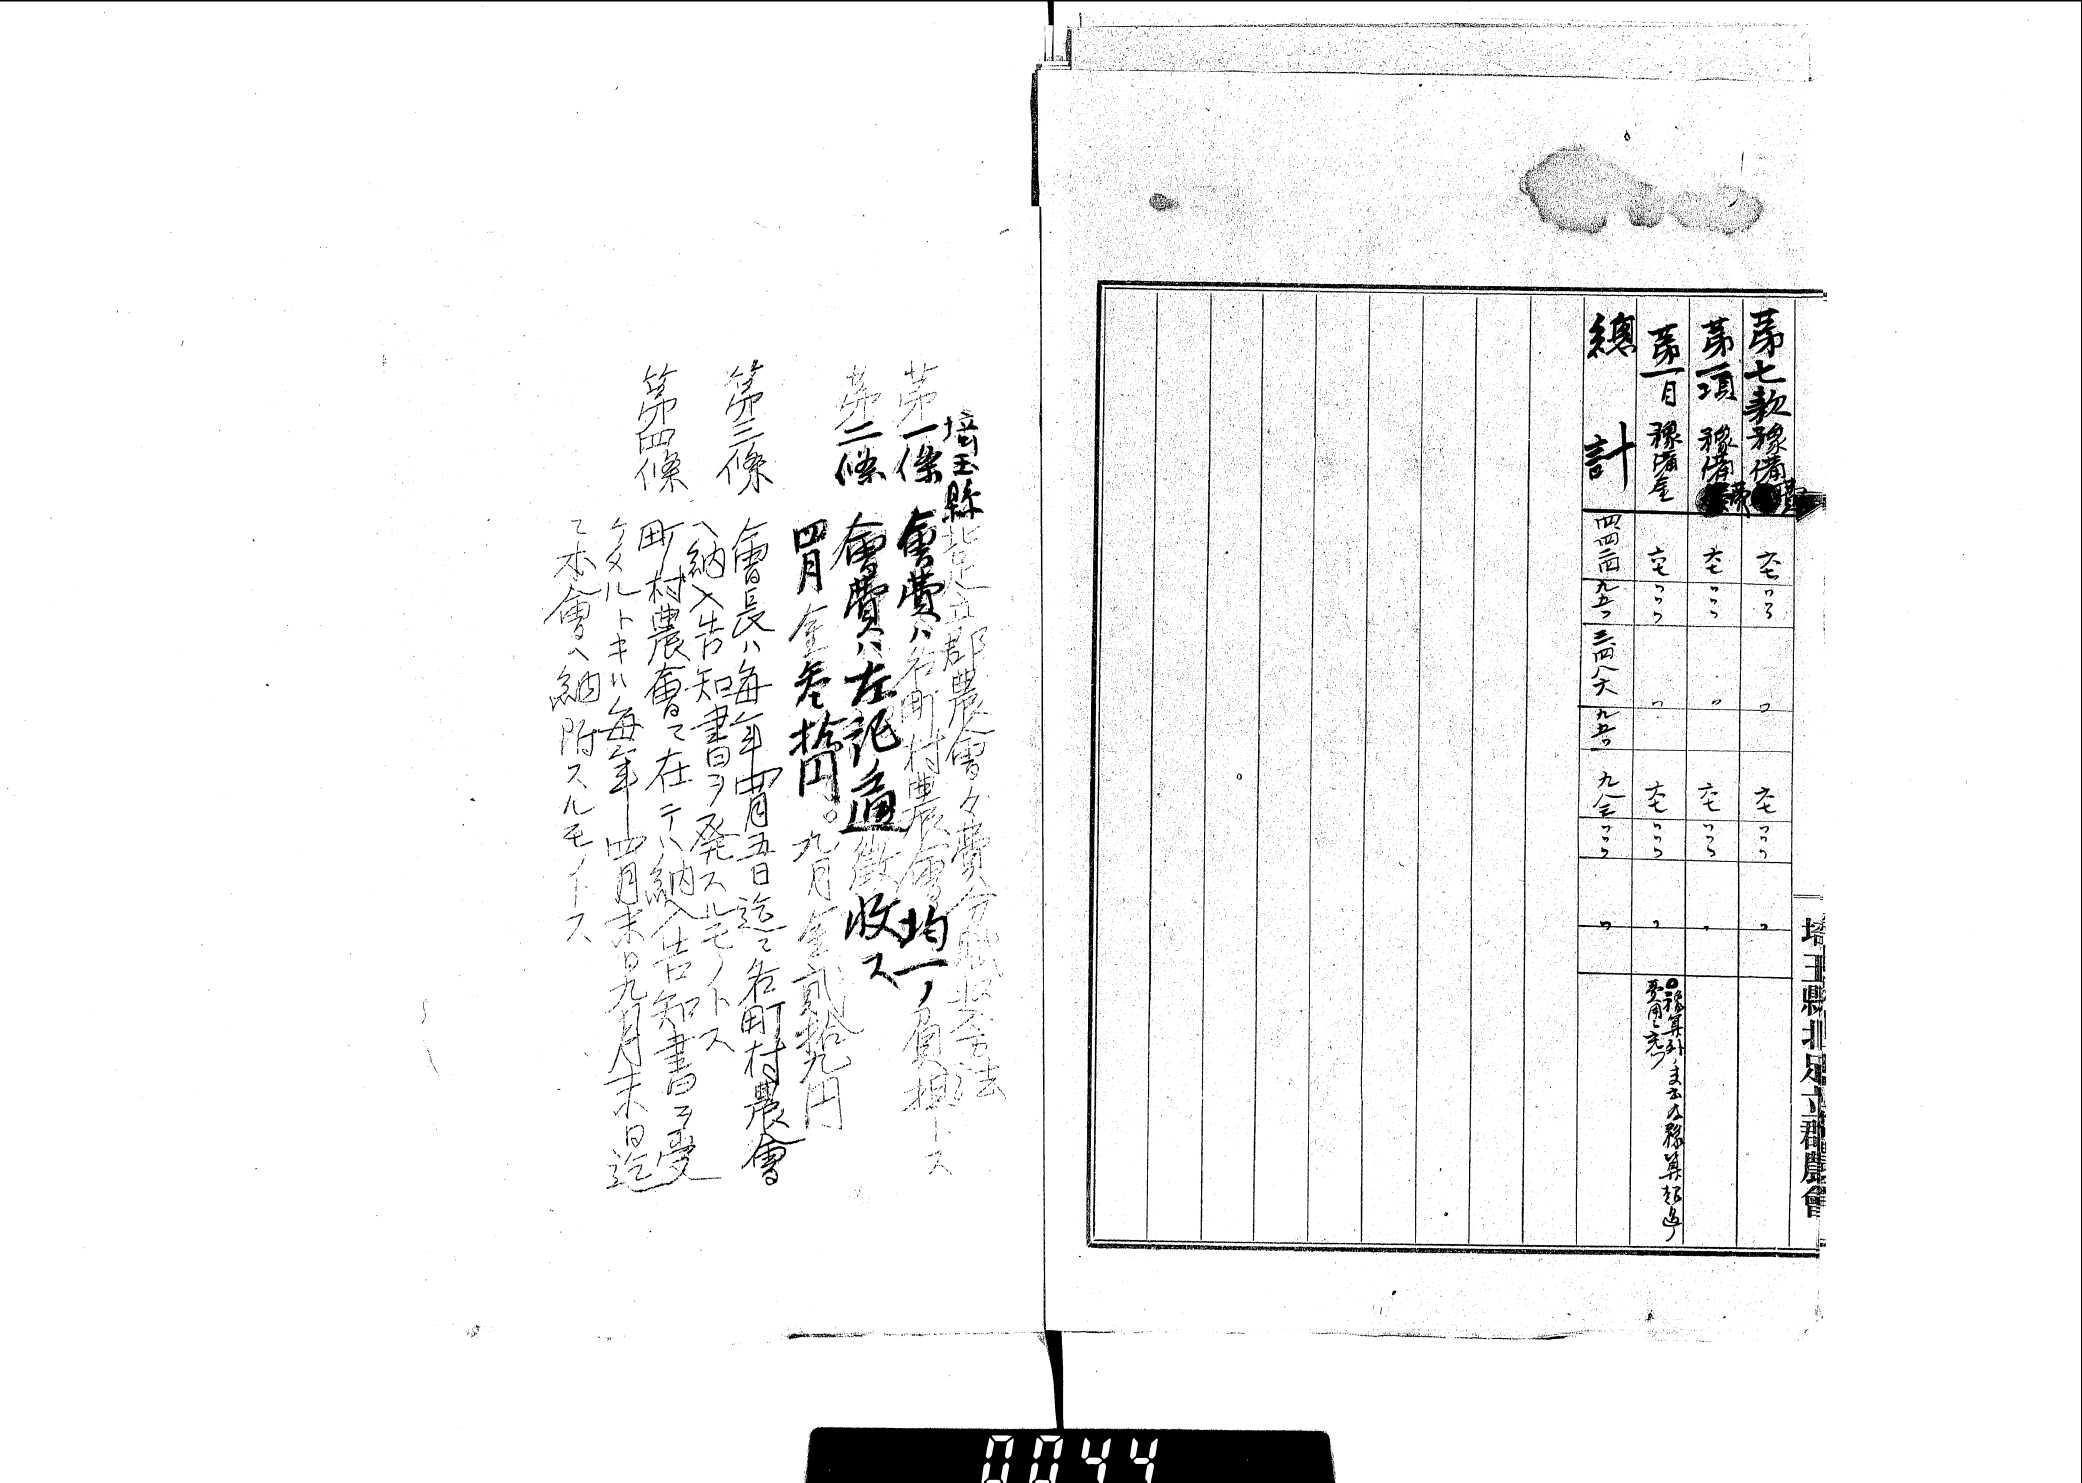 埼玉縣北足立郡農會
第七款 豫備費 六七〇〇〇 〇 六七〇〇〇 〇
第一項 豫備費 六七〇〇〇 〇 六七〇〇〇 〇
第一目 豫備金 六七〇〇〇 〇 六七〇〇〇 〇 豫算外ノ支出又ハ豫算超過ノ費用ニ充ツ
總計 九五〇 三四八六 九五〇 〇〇〇 〇
埼玉縣北足立郡農會々費分賦収入方法
第一條 會費ハ各町村農會均一ノ負担トス
第二條 會費ハ左記ノ通徴收ス
四月金参拾円。九月金貳拾九円
第三條 會長ハ毎年四月五日迄ニ各町村農會
ヘ納入告知書ヲ発スルモノトス
第四條 町村農會ニ在テハ納入告知書ヲ受
ケタルトキハ毎年四月末日九月末日迄
ニ本會ヘ納附スルモノトス
0044